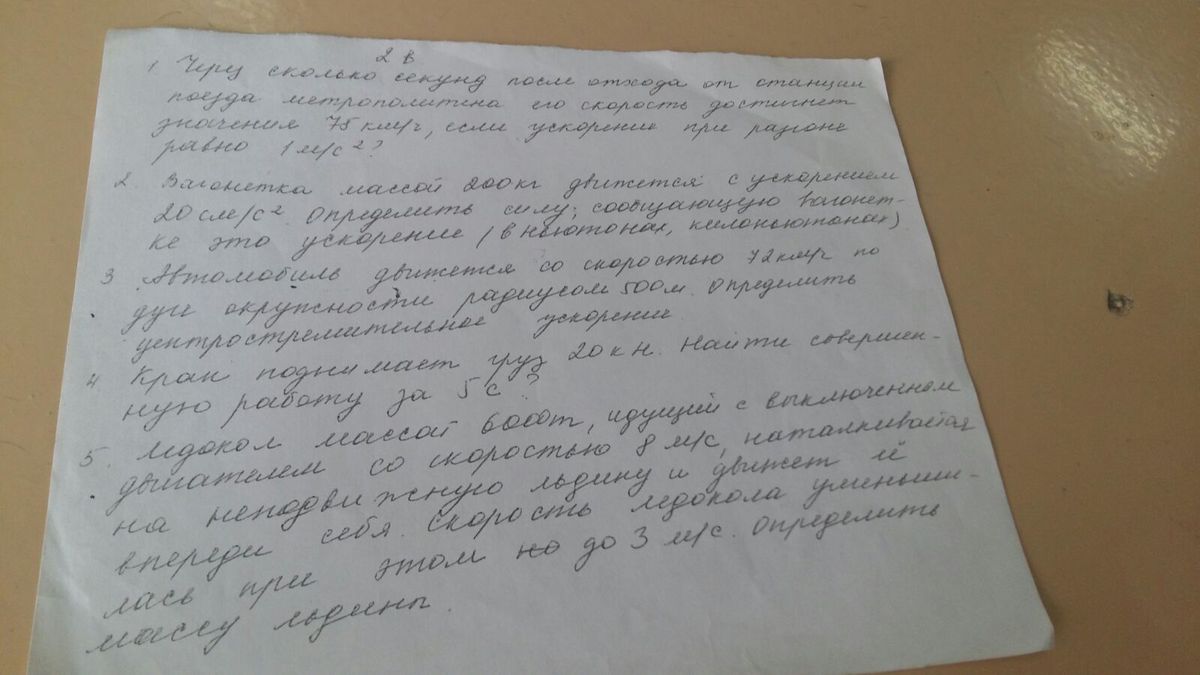 2 в
1. Через сколько секунд после отхода от станции
поезда метрополитена его скорость достигнет
значения 75 км/г, если ускорение при разгоне
равно 1 м/с²?
2. Вагонетка массой 200 кг движется с ускорением
20 см/с². Определить силу, сообщающую вагонет-
ке это ускорение (в ньютонах, килоньютонах).
3 Автомобиль движется со скоростью 72 км/г по
дуге окружности радиусом 500 м. Определить
центростремительное ускорение.
4 Кран поднимает груз 20 кН. Найти совершен-
ную работу за 5 с?
5. Ледокол массой 6000т, идущий с выключенном
двигателем со скоростью 8 м/с, наталкивается
на неподвижную льдину и движет её
впереди себя. Скорость ледокола уменьши-
лась при этом но до 3 м/с. Определить
массу льдины.